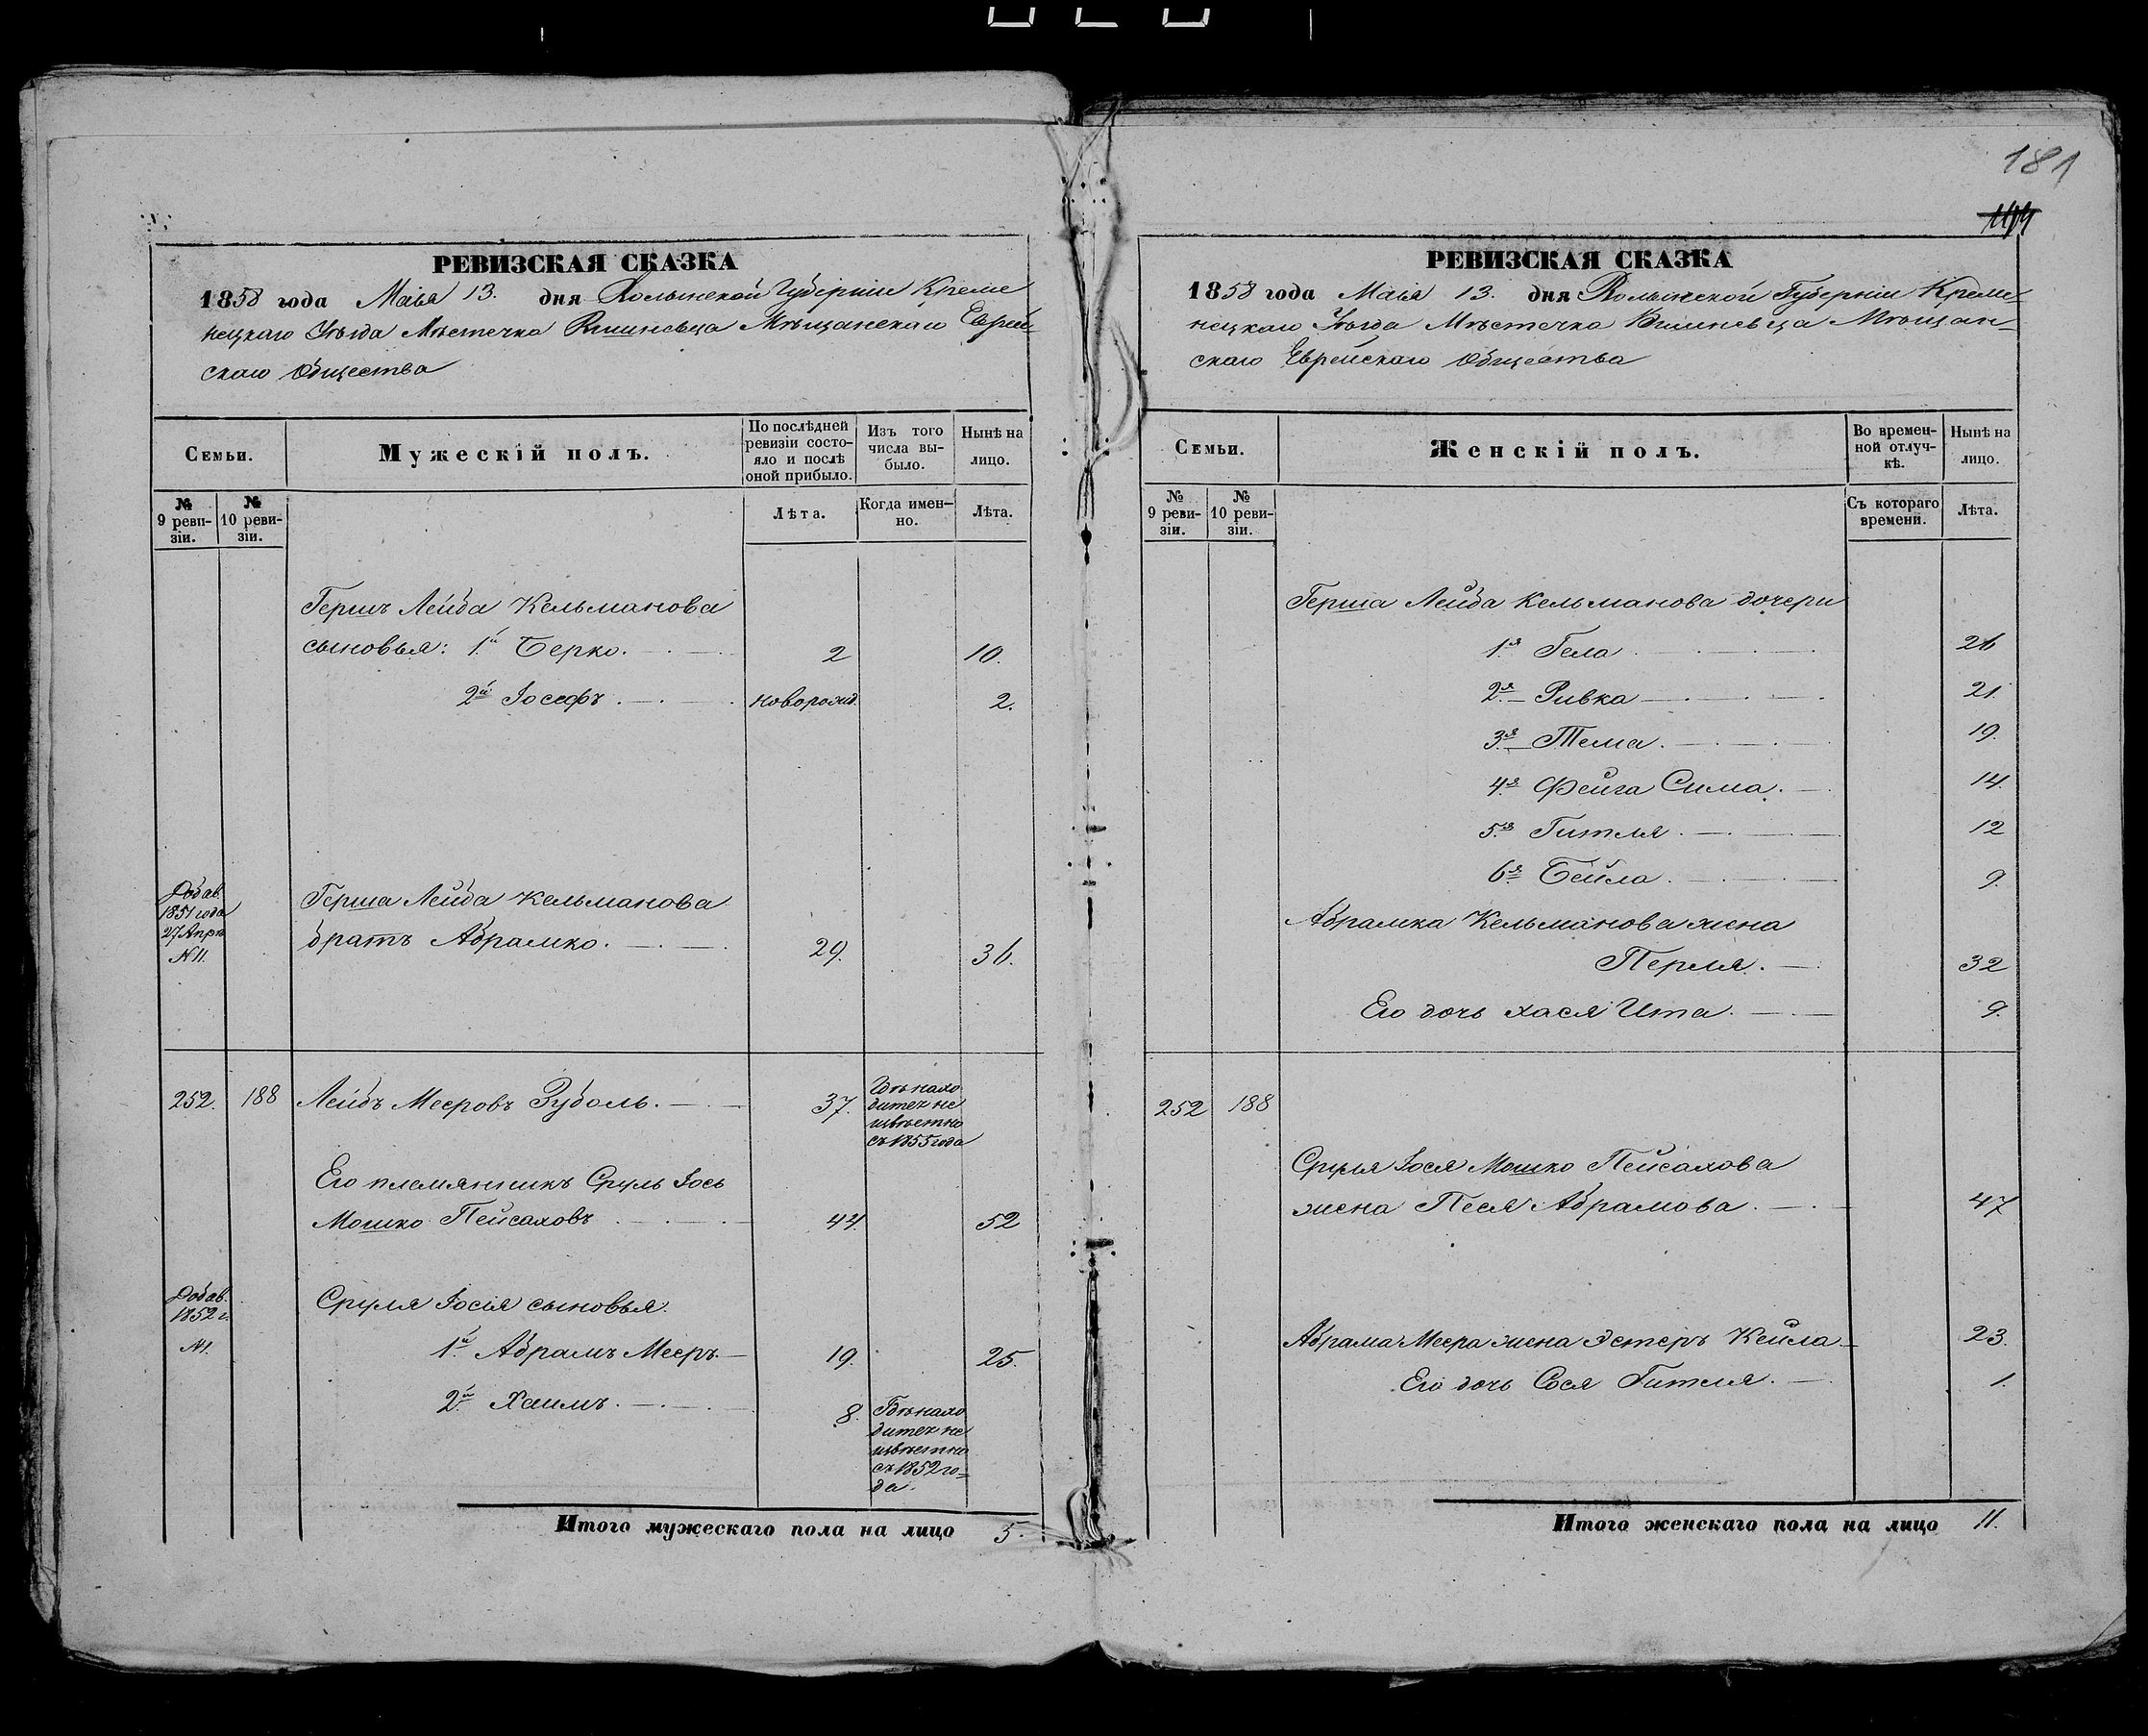 181
РЕВИЗСКАЯ СКАЗКА
1858 года Маія 13. дня Волынской Губерніи Креме
нецкаго Уѣзда Мѣстечка Вишневца Мѣщанскаго Еврей-
скаго Общества
Семьи.
Мужескій полъ.
По послѣдней ревизіи состо-
яло и послѣ оной прибыло.
Изъ того числа вы-
было.
Нынѣ на лицо.
№ 9 реви-
зіи.
№ 10 реви-
зіи.
Лѣта.
Когда имен-
но.
Лѣта.
Гершъ Лейба Кельманова
сыновья: 1й Берко. 2 10.
2й Іосефъ. новорожд. 2.
Добав.
1851 года
27 Апрѣ
N 11.
Герша Лейба Кельманова
братъ Абрамко. 29. 36.
252. 188 Лейбъ Мееровъ Зуболь. 37.
Гдѣ нахо
дитсx не
извѣстно
съ 1855 года
Его племянникъ Сруль Іось
Мошко Пейсаховъ 44. 52
Добав.
1852 г.
N 1.
Сруля Іосія сыновья.
1й Абрамъ Мееръ. 19. 25.
2й Хаимъ. 8.
Гдѣ нахо
дитсx не
извѣстно
съ 1852 го-
да.
Итого мужескаго пола на лицо 5.
РЕВИЗСКАЯ СКАЗКА
1858 года Маія 13. дня Волынской Губерніи Креме
нецкаго Уѣзда Мѣстечка Вишневца Мѣщан-
скаго Еврейскаго Общества
Семьи.
Женскій полъ.
Во времен-
ной отлуч-
кѣ.
Нынѣ на лицо.
№ 9 реви-
зіи.
№ 10 реви-
зіи.
Съ котораго времени.
Лѣта.
Герша Лейба Кельманова дочери
1я Гела 26
2я Ривка 21.
3я Тема. 19.
4я Фейга Сима. 14.
5я Гитля. 12
6я Бейла. 9.
Абрамка Кельманова жена
Перля. 32
Его дочь Хася Ита. 9.
252 188
Сруля Іося Мошко Пейсахова
жена Песя Абрамова. 47
Абрама Меера жена Эстеръ Кейла 23.
Его дочь Сося Гитля. 1.
Итого женскаго пола на лицо 11.